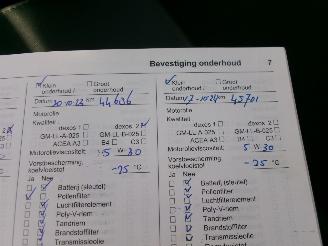 Bevestiging onderhoud 7
Klein onderhoud / Groot onderhoud
Datum 30-10-23 Km 44636
Motorolie
Kwaliteit
dexos 1 dexos 2
GM-LL-A-025 GM-LL-B-025
ACEA A3 B4 C3
Motorolieviscositeit: 5 W 30
Vorstbescherming koelvloeistof -25 °C
Ja Nee
Batterij (sleutel)
Pollenfilter
Luchtfilterelement
Poly-V-riem
Tandriem
Brandstoffilter
Transmissieolie
Klein onderhoud / Groot onderhoud
Datum Km 45701
Motorolie
Kwaliteit:
dexos 1 dexos 2
GM-LL-A-025 GM-LL-B-025
ACEA A3 B4 C3
Motorolieviscositeit: 5 W 30
Vorstbescherming koelvloeistof -25 °C
Ja Nee
Batterij, (sleutel)
Pollenfilter
Luchtfilterelement
Poly-V-riem
Tandriem
Brandstoffilter
Transmissieolie